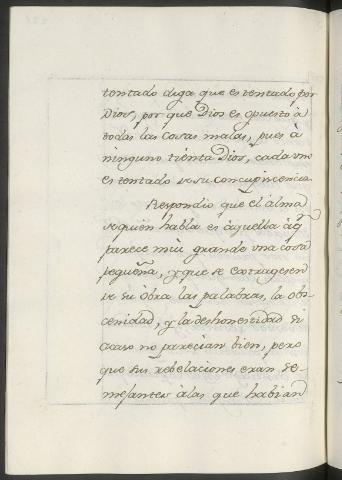 tentado diga que es tentado por
Dios, por que Dios es opuesto â
todas las cosas malas, pues â
ninguno tienta Dios, cada vno
es tentado de su concupiscencia.
Respondio que el alma
de quien habla es âquella âq
parece mui grande vna cosa
pequeña, y que se extragesen
de su obra las palabras, la obs-
cenidad, y la deshonestidad si
acaso no parecian bien, pero
que sus rebelaciones eran se-
mejantes âlas que habian